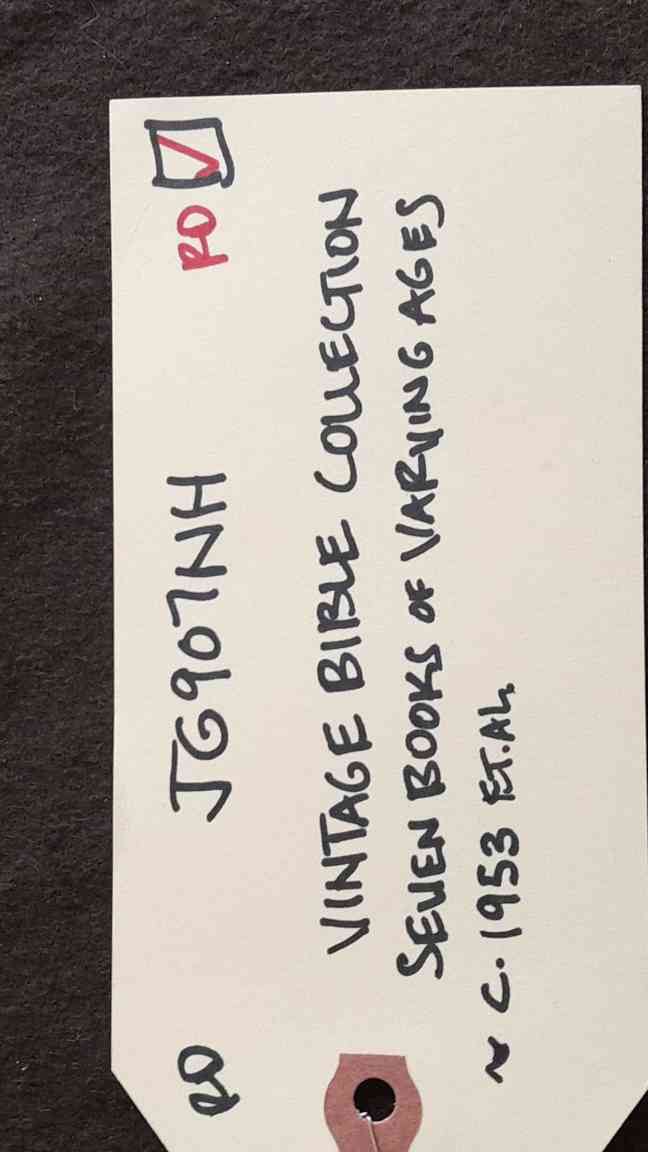 RO JG907NH RO
VINTAGE BIBLE COLLECTION
SEVEN BOOKS OF VARYING AGES
~ C. 1953 ET.AL